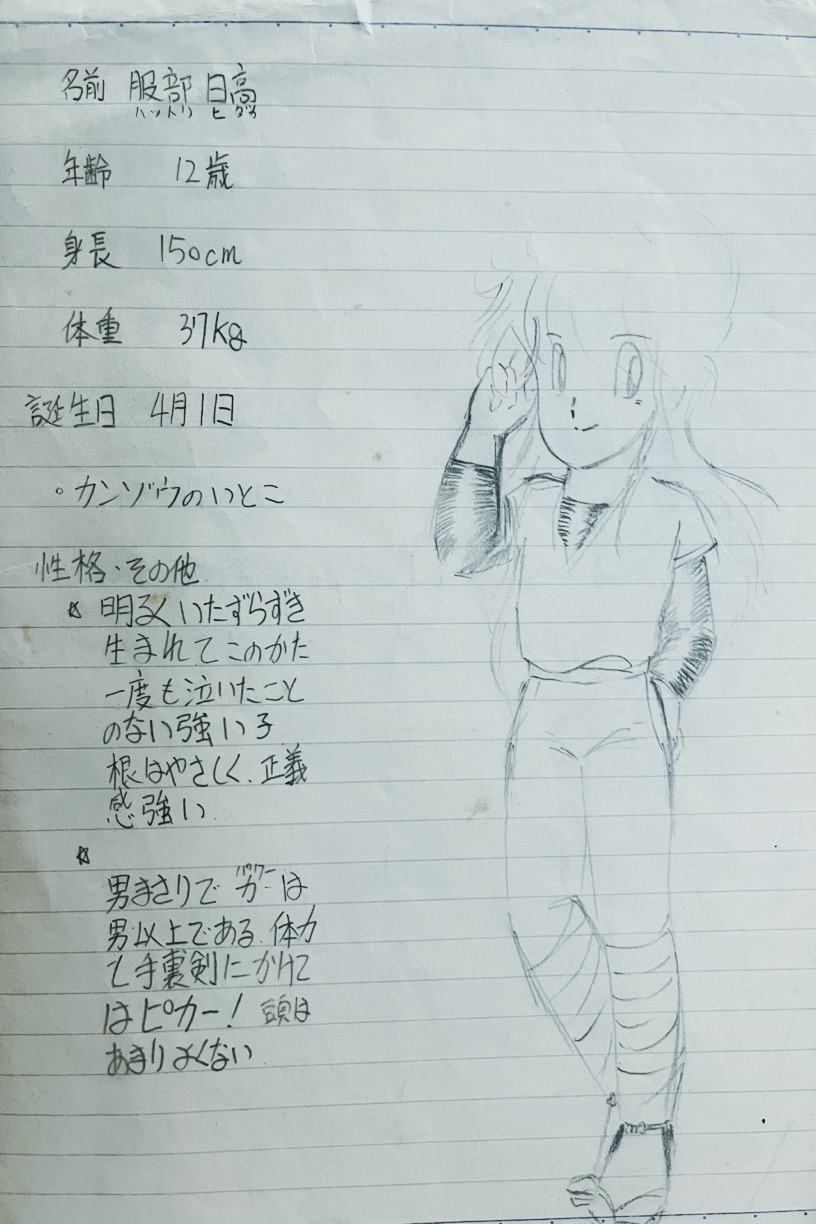 名前 服部 日高
ハットリ ヒダカ
年齢 12歳
身長 150cm
体重 37kg
誕生日 4月1日
。カンゾウのいとこ
性格・その他
☆ 明るくいたずらずき
生まれてこのかた
一度も泣いたこと
のない強い子
根はやさしく、正義
感強い
☆
パワー
男まさりで力は
男以上である、体力
と手裏剣にかけて
はピカー! 頭は
あまりよくない